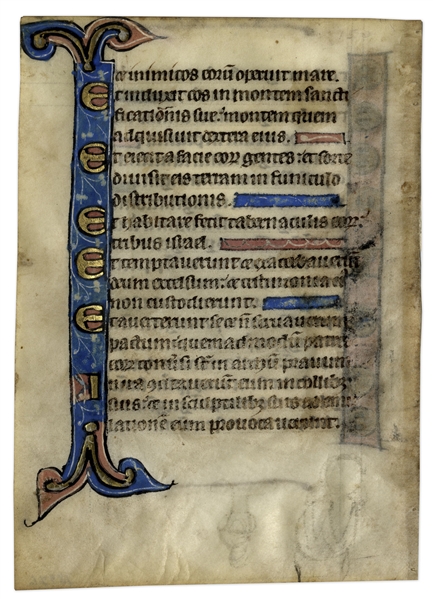 et inimicos eorū operuit mare.
Et induxit eos in montem sancti
ficationis sue: montem quem
adquisiuit dextera eius.
Et eiecit a facie eoꝝ gentes: et sorte
diuisit eis terram in funiculo
distributionis.
Et habitare fecit tabernaculis eoꝝ
tribus israel.
Et temptauerunt et exacerbauerūt
deum excelsum: et testimonia ei
non custodierunt.
Et auerterunt se et nō seruauerunt
pactum: quemadmodū patres
eoꝝ conuersi sūt in arcum prauum
In ira concitauerūt eum in collibꝫ
suis: et in sculptilibꝫ suis ad emu
lationē eum prouocauerunt.